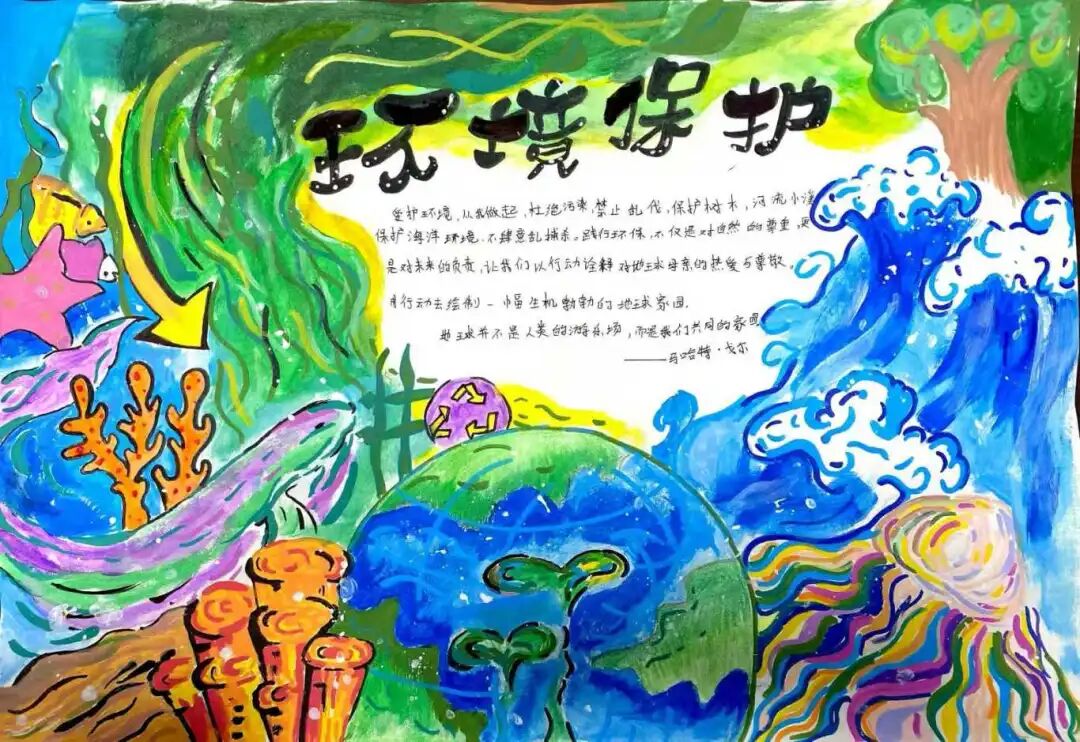 环境保护
爱护环境,从我做起,杜绝污染,禁止乱伐,保护树木,河流小溪
保护海洋环境.不肆意乱捕杀。践行环保,不仅是对自然的尊重,更
是对未来的负责,让我们以行动诠释对地球母亲的热爱与尊敬。
用行动去绘制一幅生机勃勃的地球家园.
地球并不是人类的游乐场,而是我们共同的家园
——马哈特·戈尔